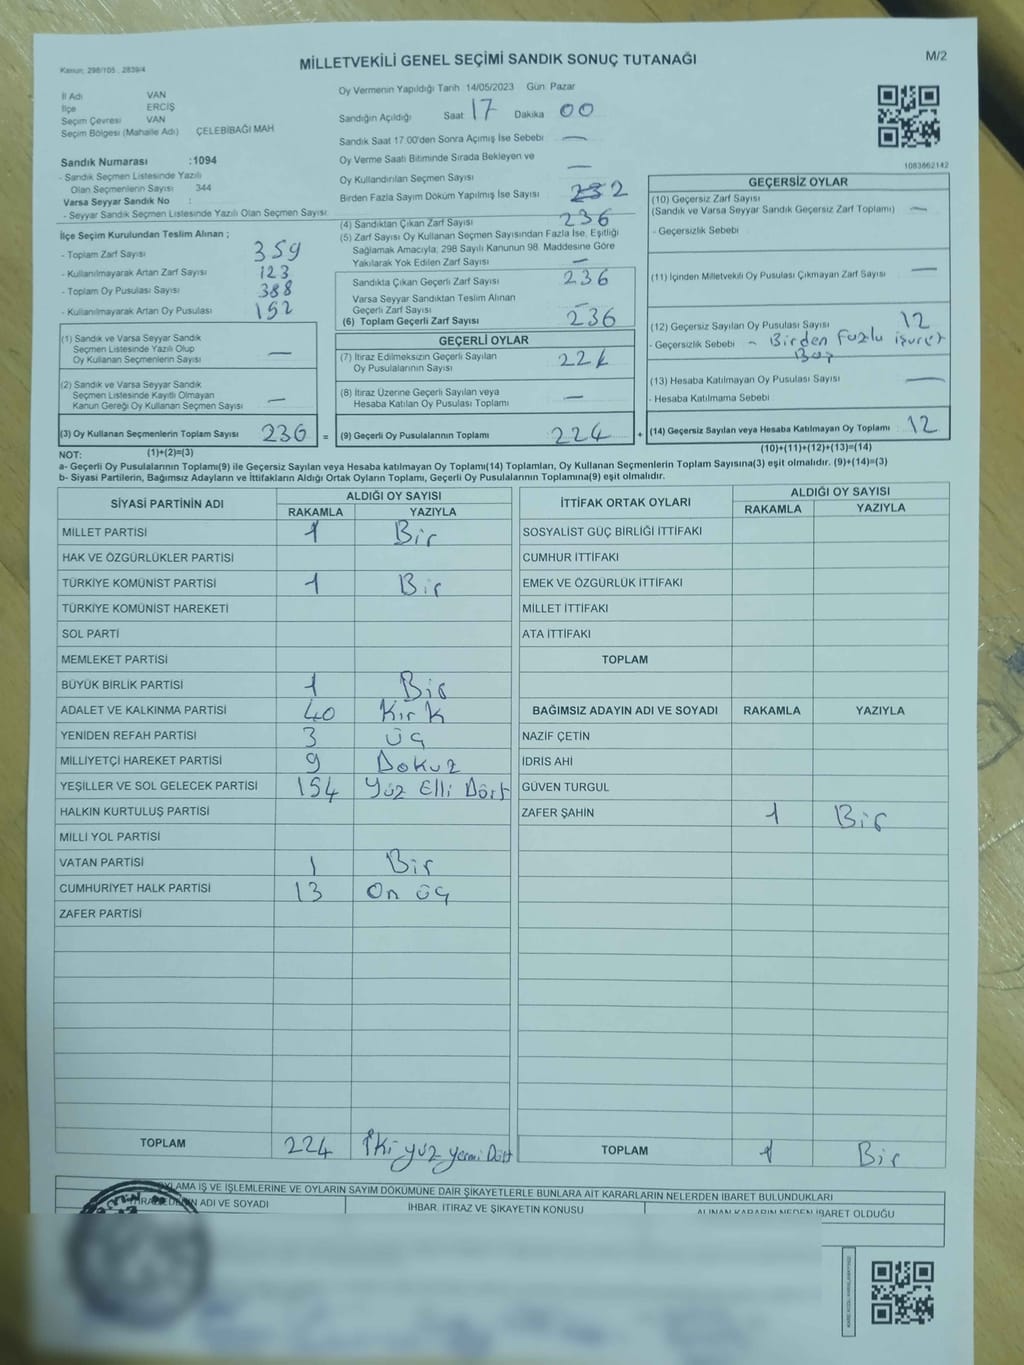 Kanun: 298/105 , 2839/4
MİLLETVEKİLİ GENEL SEÇİMİ SANDIK SONUÇ TUTANAĞI
M/2
İl Adı VAN
İlçe ERCİŞ
Seçim Çevresi VAN
Seçim Bölgesi (Mahalle Adı) ÇELEBİBAĞI MAH
Sandık Numarası :1094
- Sandık Seçmen Listesinde Yazılı
Olan Seçmenlerin Sayısı 344
Varsa Seyyar Sandık No :
- Seyyar Sandık Seçmen Listesinde Yazılı Olan Seçmen Sayısı
İlçe Seçim Kurulundan Teslim Alınan ;
- Toplam Zarf Sayısı 359
- Kullanılmayarak Artan Zarf Sayısı 123
- Toplam Oy Pusulası Sayısı 388
- Kullanılmayarak Artan Oy Pusulası 152
(1) Sandık ve Varsa Seyyar Sandık
Seçmen Listesinde Yazılı Olup
Oy Kullanan Seçmenlerin Sayısı —
(2) Sandık ve Varsa Seyyar Sandık
Seçmen Listesinde Kayıtlı Olmayan
Kanun Gereği Oy Kullanan Seçmen Sayısı —
(3) Oy Kullanan Seçmenlerin Toplam Sayısı 236 =
(1)+(2)=(3)
Oy Vermenin Yapıldığı Tarih 14/05/2023 Gün: Pazar
Sandığın Açıldığı Saat 17 Dakika 00
Sandık Saat 17.00'den Sonra Açımış İse Sebebi —
Oy Verme Saati Bitiminde Sırada Bekleyen ve
Oy Kullandırılan Seçmen Sayısı —
Birden Fazla Sayım Döküm Yapılmış İse Sayısı 2
(4) Sandıktan Çıkan Zarf Sayısı 236
(5) Zarf Sayısı Oy Kullanan Seçmen Sayısından Fazla İse, Eşitliği
Sağlamak Amacıyla, 298 Sayılı Kanunun 98. Maddesine Göre
Yakılarak Yok Edilen Zarf Sayısı —
Sandıkta Çıkan Geçerli Zarf Sayısı 236
Varsa Seyyar Sandıktan Teslim Alınan
Geçerli Zarf Sayısı —
(6) Toplam Geçerli Zarf Sayısı 236
GEÇERLİ OYLAR
(7) İtiraz Edilmeksizin Geçerli Sayılan
Oy Pusulalarının Sayısı 224
(8) İtiraz Üzerine Geçerli Sayılan veya
Hesaba Katılan Oy Pusulası Toplamı —
(9) Geçerli Oy Pusulalarının Toplamı 224 +
1083662142
GEÇERSİZ OYLAR
(10) Geçersiz Zarf Sayısı
(Sandık ve Varsa Seyyar Sandık Geçersiz Zarf Toplamı) —
- Geçersizlik Sebebi
(11) İçinden Milletvekili Oy Pusulası Çıkmayan Zarf Sayısı —
(12) Geçersiz Sayılan Oy Pusulası Sayısı 12
- Geçersizlik Sebebi - Birden Fazla işaret
(13) Hesaba Katılmayan Oy Pusulası Sayısı —
- Hesaba Katılmama Sebebi
(14) Geçersiz Sayılan veya Hesaba Katılmayan Oy Toplamı 12
(10)+(11)+(12)+(13)=(14)
NOT:
a- Geçerli Oy Pusulalarının Toplamı(9) ile Geçersiz Sayılan veya Hesaba katılmayan Oy Toplamı(14) Toplamları, Oy Kullanan Seçmenlerin Toplam Sayısına(3) eşit olmalıdır. (9)+(14)=(3)
b- Siyasi Partilerin, Bağımsız Adayların ve İttifakların Aldığı Ortak Oyların Toplamı, Geçerli Oy Pusulalarının Toplamına(9) eşit olmalıdır.
SİYASİ PARTİNİN ADI ALDIĞI OY SAYISI
RAKAMLA YAZIYLA
MİLLET PARTİSİ 1 Bir
HAK VE ÖZGÜRLÜKLER PARTİSİ
TÜRKİYE KOMÜNİST PARTİSİ 1 Bir
TÜRKİYE KOMÜNİST HAREKETİ
SOL PARTİ
MEMLEKET PARTİSİ
BÜYÜK BİRLİK PARTİSİ 1 Bir
ADALET VE KALKINMA PARTİSİ 40 Kırk
YENİDEN REFAH PARTİSİ 3 üç
MİLLİYETÇİ HAREKET PARTİSİ 9 Dokuz
YEŞİLLER VE SOL GELECEK PARTİSİ 154 Yüz Elli Dört
HALKIN KURTULUŞ PARTİSİ
MİLLİ YOL PARTİSİ
VATAN PARTİSİ 1 Bir
CUMHURİYET HALK PARTİSİ 13 On üç
ZAFER PARTİSİ
TOPLAM 224 İki yüz yermi Dört
İTTİFAK ORTAK OYLARI ALDIĞI OY SAYISI
RAKAMLA YAZIYLA
SOSYALİST GÜÇ BİRLİĞİ İTTİFAKI
CUMHUR İTTİFAKI
EMEK VE ÖZGÜRLÜK İTTİFAKI
MİLLET İTTİFAKI
ATA İTTİFAKI
TOPLAM
BAĞIMSIZ ADAYIN ADI VE SOYADI RAKAMLA YAZIYLA
NAZİF ÇETİN
İDRİS AHİ
GÜVEN TURGUL
ZAFER ŞAHİN 1 Bir
TOPLAM 1 Bir
OYLAMA İŞ VE İŞLEMLERİNE VE OYLARIN SAYIM DÖKÜMÜNE DAİR ŞİKAYETLERLE BUNLARA AİT KARARLARIN NELERDEN İBARET BULUNDUKLARI
ADI VE SOYADI İHBAR, İTİRAZ VE ŞİKAYETİN KONUSU ALINAN KARARIN NEDEN İBARET OLDUĞU